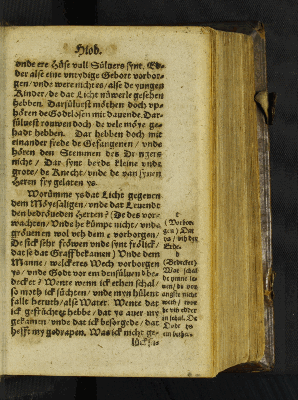 Hiob.
vnde ere Hüse vull Süluers synt. Ed-
der alse eine vntydige Gebort vorbor-
gen / vnde were nicht es / alse de jungen
Kinder / de dat Licht nüwerle geseen
hebben. Darsüluest möthen doch vp-
hören de Godtlosen mit dauende. Dar-
süluest rouwen doch de vele möye ge-
hadt hebben. Dar hebben doch mit
einander frede de Gefangenen / vnde
hören den Stemmen des Dringers
nicht / Dar synt beyde kleine vnde
grote / de Knecht / vnde de van synem
Heren fry gelaten ys.
Worümme ys dat Licht gegeuen
dem Möyesaligen / vnde dat Leuende
den bedröueden Herten? (De des vor-
wachten / Vnde he kümpt nicht / vnde
gröuen en wol vth dem vorborgen /
De sick sehr fröwen vnde synt frölick /
dat se dat Graff bekamen) Vnde dem
Manne / welckeres Wech vorborgen
ys / vnde Godt vor em densüluen be-
decket? Wente wenn ick ethen schal /
so moth ick süchten / vnde myn hülent
falt heruth / alse Water. Wente dat
ick gefrüchtet hebbe / dat ys auer my
gekamen / vnde dat ick besorgede / dat
hefft my gedrapen. Was ick nicht ge-
lück sa-
c
(Vorbor-
gen) Dat
ys / vth der
Erde.
b
(Bedecket)